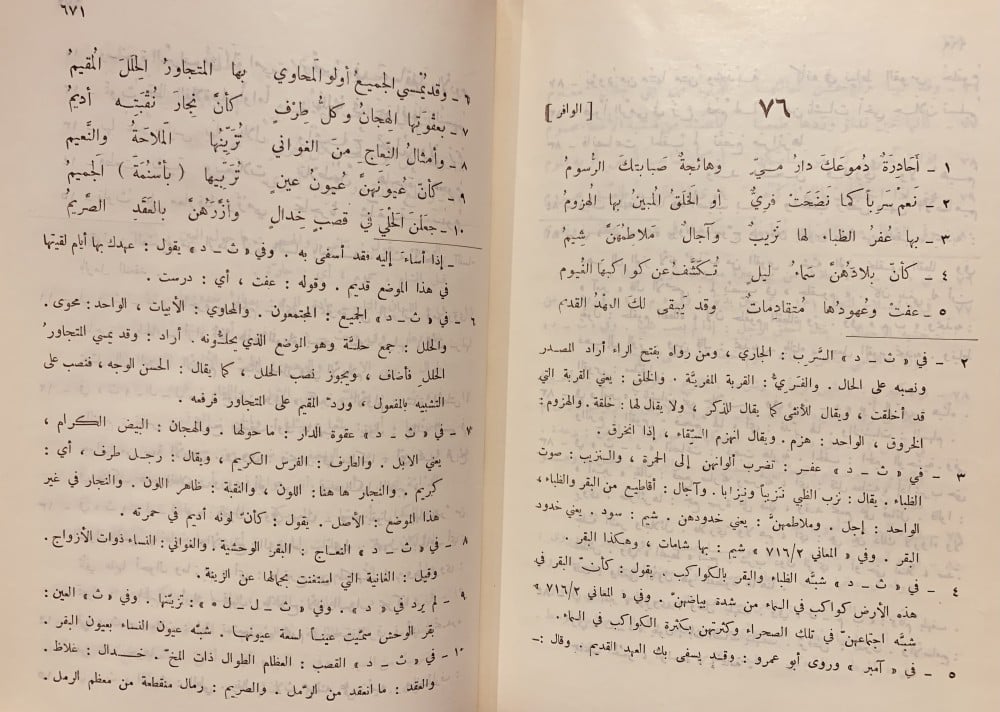 ٧٦
[ الوافر ]
١ ـ أحادرةٌ دُموعَكَ دارُ ميٍّ وهائجةٌ صَبابتكَ الرُّسومُ
٢ ـ نَعَمْ سَرِباً كما نَضَحَتْ فَرِيٌّ أو الخَلَقُ المُبينُ بها الهُزومُ
٣ ـ بها عُفرُ الظباء لها نَزيبٌ وآجالٌ مَلاطمُهنَّ شِيمُ
٤ ـ كأنّ بلادَهُنَّ سماءُ ليلٍ تُكشَّفُ عن كواكبها الغُيومُ
٥ ـ عفتْ وعُهودُها مُتقادِماتٌ وقد يَبقى لكَ العَهْدُ القديم
٢ ـ في « ث ـ د » السَّرِب : الجاري ، ومن رواه بفتح الراء أراد المصدر
ونصبه على الحال . والفَرِيُّ : القربة المفريَّة . والخلق : يعني القربة التي
قد أخلقت ، ويقال للأنثى كما يقال للذكر ، ولا يقال لها : خلقة . والهزوم :
الخروق ، الواحد : هزم . ويقال انهزم السِّقاء ، إذا انخرق .
٣ ـ في « ث ـ د » عفر : تضرب ألوانهن إلى الحمرة ، والنزيب : صوت
الظباء . يقال : نزب الظبي نَزيباً ونيزابا . وآجال : أقاطيع من البقر والظباء ،
الواحد : إجل . وملاطمهنَّ : يعني خدودهن . شيم : سود . يعني خدود
البقر . وفي « المعاني ٧١٦/٢ » شيم : بها شامات ، وهكذا البقر .
٤ ـ في « ث ـ د » شبَّه الظباء والبقر بالكواكب . يقول : كأن البقر في
هذه الأرض كواكب في السماء من شدة بياضهنّ . وفي « المعاني ٧١٦/٢ »
شبَّه اجتماعهنّ في تلك الصحراء وكثرتهن بكثرة الكواكب في السماء .
٥ ـ في « آمبر » وروى أبو عمرو : وقد يسفى بك العهد القديم . وقال :ـ
٦٧١
٦ ـ وقد يُمْسي الجميعُ أولو المَحاوي بها المتجاورُ الحِلَلَ المُقيمُ
٧ ـ بعَقْوتِها الهِجانُ وكلُّ طِرْفٍ كأنَّ نِجارَ نُقْبَتِه أديمُ
٨ ـ وأمثالُ النِّعاجِ مِنَ الغواني تُزَيِّنُها المَلاحَةُ والنَّعيم
٩ ـ كأنّ عُيونَهُنَّ عُيونُ عينٍ تُرَبِّيها ( بأسْنُمَةَ ) الجَميمُ
١٠ ـ جعَلنَ الحَلْيَ في قصَبٍ خِدالٍ وأزَّرَهُنَّ بالعَقَدِ الصَّريمُ
ـ إذا أساءَ إليه فقد أسفى به . وفي « ث ـ د » يقول : عهدك بها أيام لقيتها
في هذا الموضع قديم . وقوله : عفت ، أي : درست .
٦ ـ في « ث ـ د » الجميع : المجتمعون . والمحاوي : الأبيات ، الواحد : محوى .
والحلل : جمع حلَّة وهو الوضع الذي يحلُّونه . أراد : وقد يمسي المتجاورُ
الحللِ فأضاف ، ويجوز نصب الحلل ، كما يقال : الحسن الوجه ، فنصب على
التشبيه بالمفعول ، وردّ المقيم على المتجاور فرفعه .
٧ ـ في « ث ـ د » عقوة الدار : ما حولها . والهجان : البيض الكرام ،
يعني الابل . والطرف : الفرس الكريم ، ويقال : رجل طرف ، أي :
كريم . والنجار ها هنا : اللون ، والنقبة : ظاهر اللون . والنجار في غير
هذا الموضع : الأصل . يقول : كأنّ لونه أديم في حمرته .
٨ ـ في « ث ـ د » النعاج : البقر الوحشية . والغواني : النساء ذوات الأزواج .
وقيل : الغانية التي استغنت بجمالها عن الزينة .
٩ ـ لم يرد في « د » . وفي « ث ـ ل ـ ل* » : تربّتها . وفي « ث » العين :
بقر الوحش سمِّيت عيناً لسعة عيونها . شبَّه عيون النساء بعيون البقر .
١٠ ـ في « ث ـ د » القصب : العظام الطوال ذات المخ . خدال : غلاظ .
والعقد : ما انعقد من الرَّمل . والصريم : رمال منقطعة من معظم الرمل .